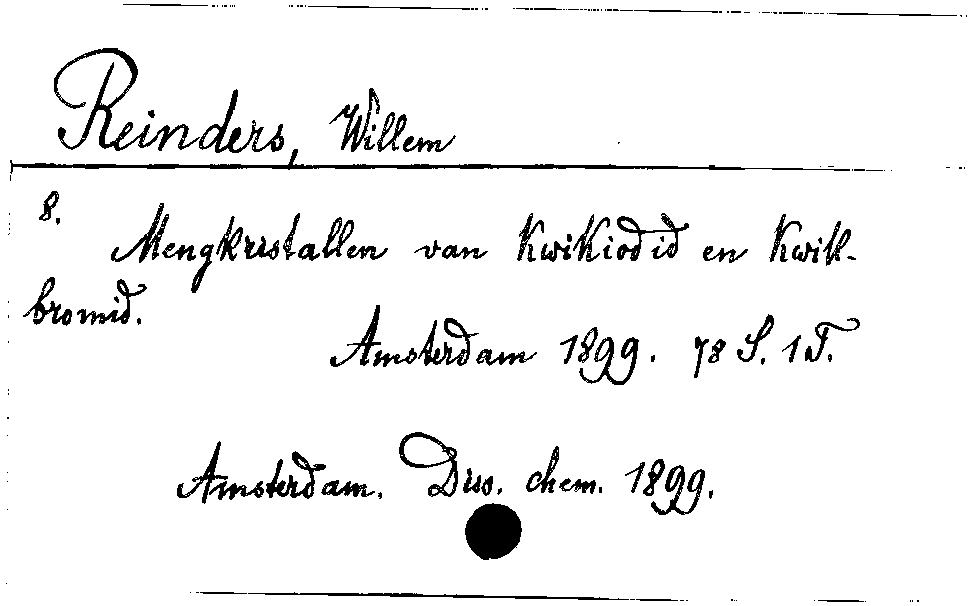 Reinders, Willem
8.
Mengkristallen van Kwikiodid en Kwik-
bromid.
Amsterdam 1899. 78 S. 1 T.
Amsterdam. Diss. chem. 1899.